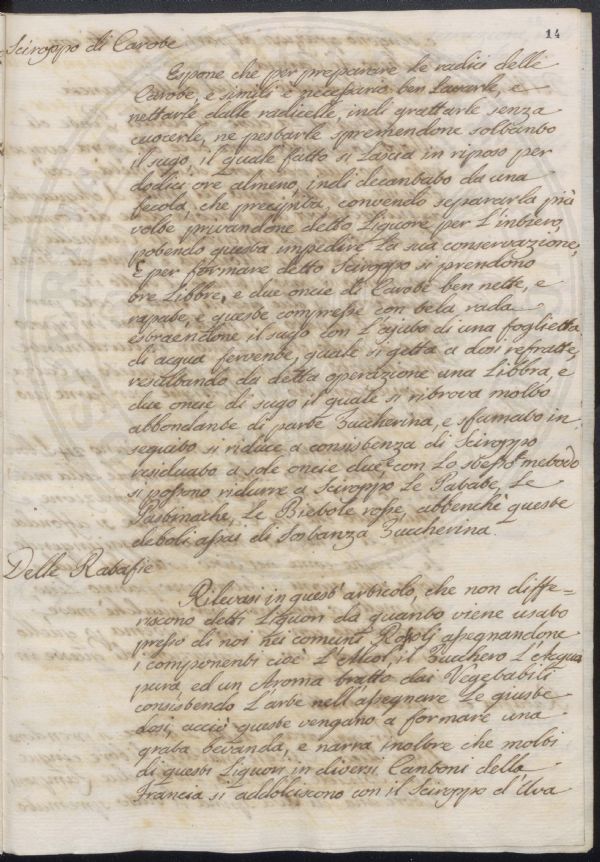 14
Sciroppo di Carobe
Espone che per preparare le radici delle
Carobe, e simili è necessario ben Lavarle, e
nettarle dalle radicelle, indi grattarle senza
cuocerle, ne pestarle spremendone soltanto
il sugo, il quale fatto si Lascia in riposo per
dodici ore almeno, indi decantato da una
fecola, che precipita, convendo separarla più
volte privandone detto Liquore per L'intiero,
potendo questa impedire La sua conservazione,
E per formare detto Sciroppo si prendono
tre Libbre, e due oncie di Carobe ben nette, e
rapate, e queste compresse con tela rada
estraendone il sugo con L'ajuto di una foglietta
di acqua fervente, quale si getta a dosi refratte,
resultando da detta operazione una Libbra, e
due oncie di sugo il quale si ritrova molto
abbondante di parte Zuccherina, e sfumato in
seguito si riduce a consistenza di Sciroppo
residuato a sole oncie due, con Lo stesso metodo
si possono ridurre a Sciroppo Le Patate, Le
Pastinache, Le Bietole rosse, abbenchè queste
deboli assai di Sostanza Zuccherina.
Delle Ratafie
Rilevasi in quest'articolo, che non diffe=
riscono detti Liquori da quanto viene usato
presso di noi nei comuni Rosoli assegnandone
i componenti cioè L'Alcol, il Zucchero L'Acqua
pura, ed un Aroma tratto dai Vegetabili
consistendo L'arte nell'assegnare Le giuste
dosi, acciò queste vengano a formare una
grata bevanda, e narra inoltre che molti
di questi Liquori in diversi Cantoni della
Francia si addolciscono con il Sciroppo d'Uva